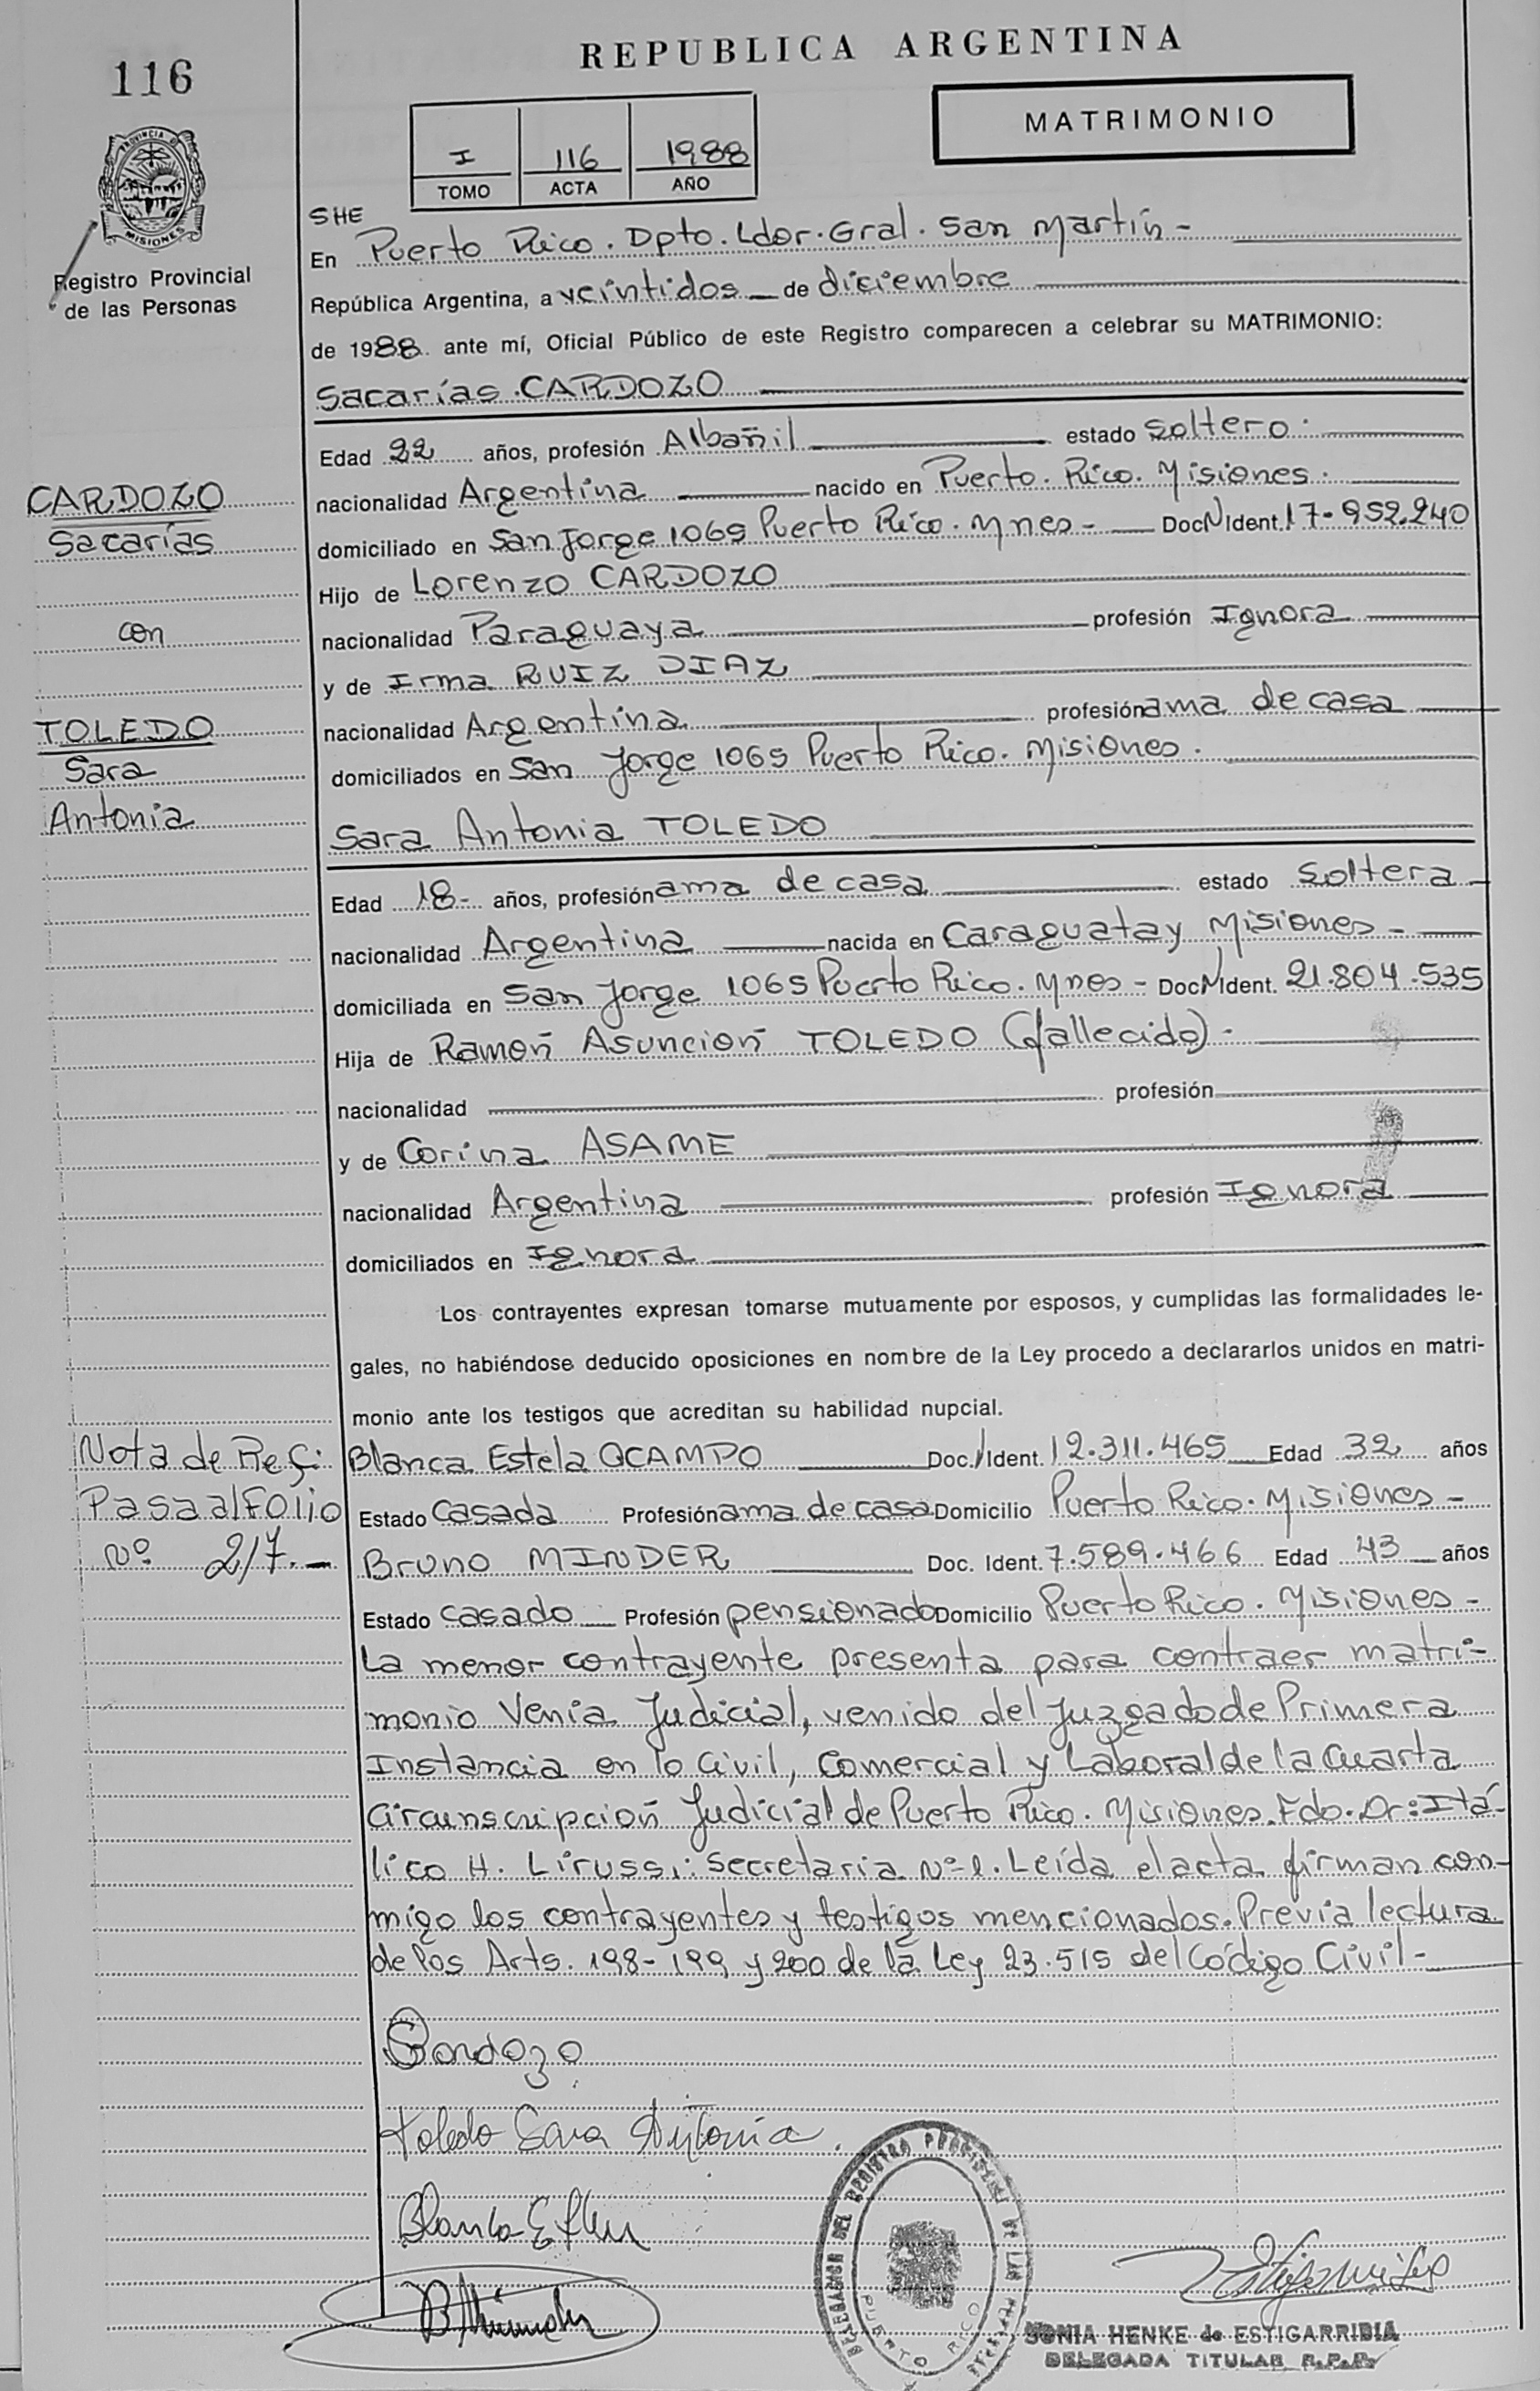 116
REPUBLICA ARGENTINA
MATRIMONIO
I 116 1988
TOMO ACTA AÑO
PROVINCIA DE
MISIONES
Registro Provincial
de las Personas
SHE
En Puerto Rico. Dpto. Ldor. Gral. San Martín -
República Argentina, a veintidos de diciembre
de 1988. ante mí, Oficial Público de este Registro comparecen a celebrar su MATRIMONIO:
Sacarías CARDOZO
Edad 22 años, profesión Albañil estado soltero.
nacionalidad Argentina nacido en Puerto. Rico. Misiones.
domiciliado en San Jorge 1065 Puerto Rico. Mnes - Doc N Ident. 17.952.240
Hijo de Lorenzo CARDOZO
nacionalidad Paraguaya profesión Ignora
y de Irma RUIZ DIAZ
nacionalidad Argentina profesión ama de casa
domiciliados en San Jorge 1065 Puerto Rico. Misiones.
CARDOZO
Sacarías
con
TOLEDO
Sara
Antonia
Sara Antonia TOLEDO
Edad 18- años, profesión ama de casa estado soltera
nacionalidad Argentina nacida en Caraguatay Misiones -
domiciliada en San Jorge 1065 Puerto Rico. Mnes - Doc N Ident. 21.804.535
Hija de Ramón Asunción TOLEDO (fallecido) -
nacionalidad profesión
y de Corina ASAME
nacionalidad Argentina profesión Ignora
domiciliados en Ignora
Los contrayentes expresan tomarse mutuamente por esposos, y cumplidas las formalidades le-
gales, no habiéndose deducido oposiciones en nombre de la Ley procedo a declararlos unidos en matri-
monio ante los testigos que acreditan su habilidad nupcial.
Blanca Estela OCAMPO Doc. Ident. 12.311.465 Edad 32 años
Estado Casada Profesión ama de casa Domicilio Puerto Rico. Misiones -
Bruno MINDER Doc. Ident. 7.589.466 Edad 43 años
Estado casado Profesión pensionado Domicilio Puerto Rico. Misiones -
Nota de Ref:
Pasa al Folio
Nº 217.-
La menor contrayente presenta para contraer matri-
monio Venia Judicial, venido del Juzgado de Primera
Instancia en lo Civil, Comercial y Laboral de la Cuarta
Circunscripción Judicial de Puerto Rico. Misiones. Fdo. Dr: Itá-
lico H. Lirussi: Secretaria Nº 1. Leída el acta firman con-
migo los contrayentes y testigos mencionados. Previa lectura
de los Arts. 198-199 y 200 de la Ley 23.515 del Código Civil -
Toledo Sara Antonia.
DELEGACION DEL REGISTRO PROVINCIAL DE LAS PERSONAS
PUERTO RICO
SONIA HENKE de ESTIGARRIBIA
DELEGADA TITULAR R.P.P.